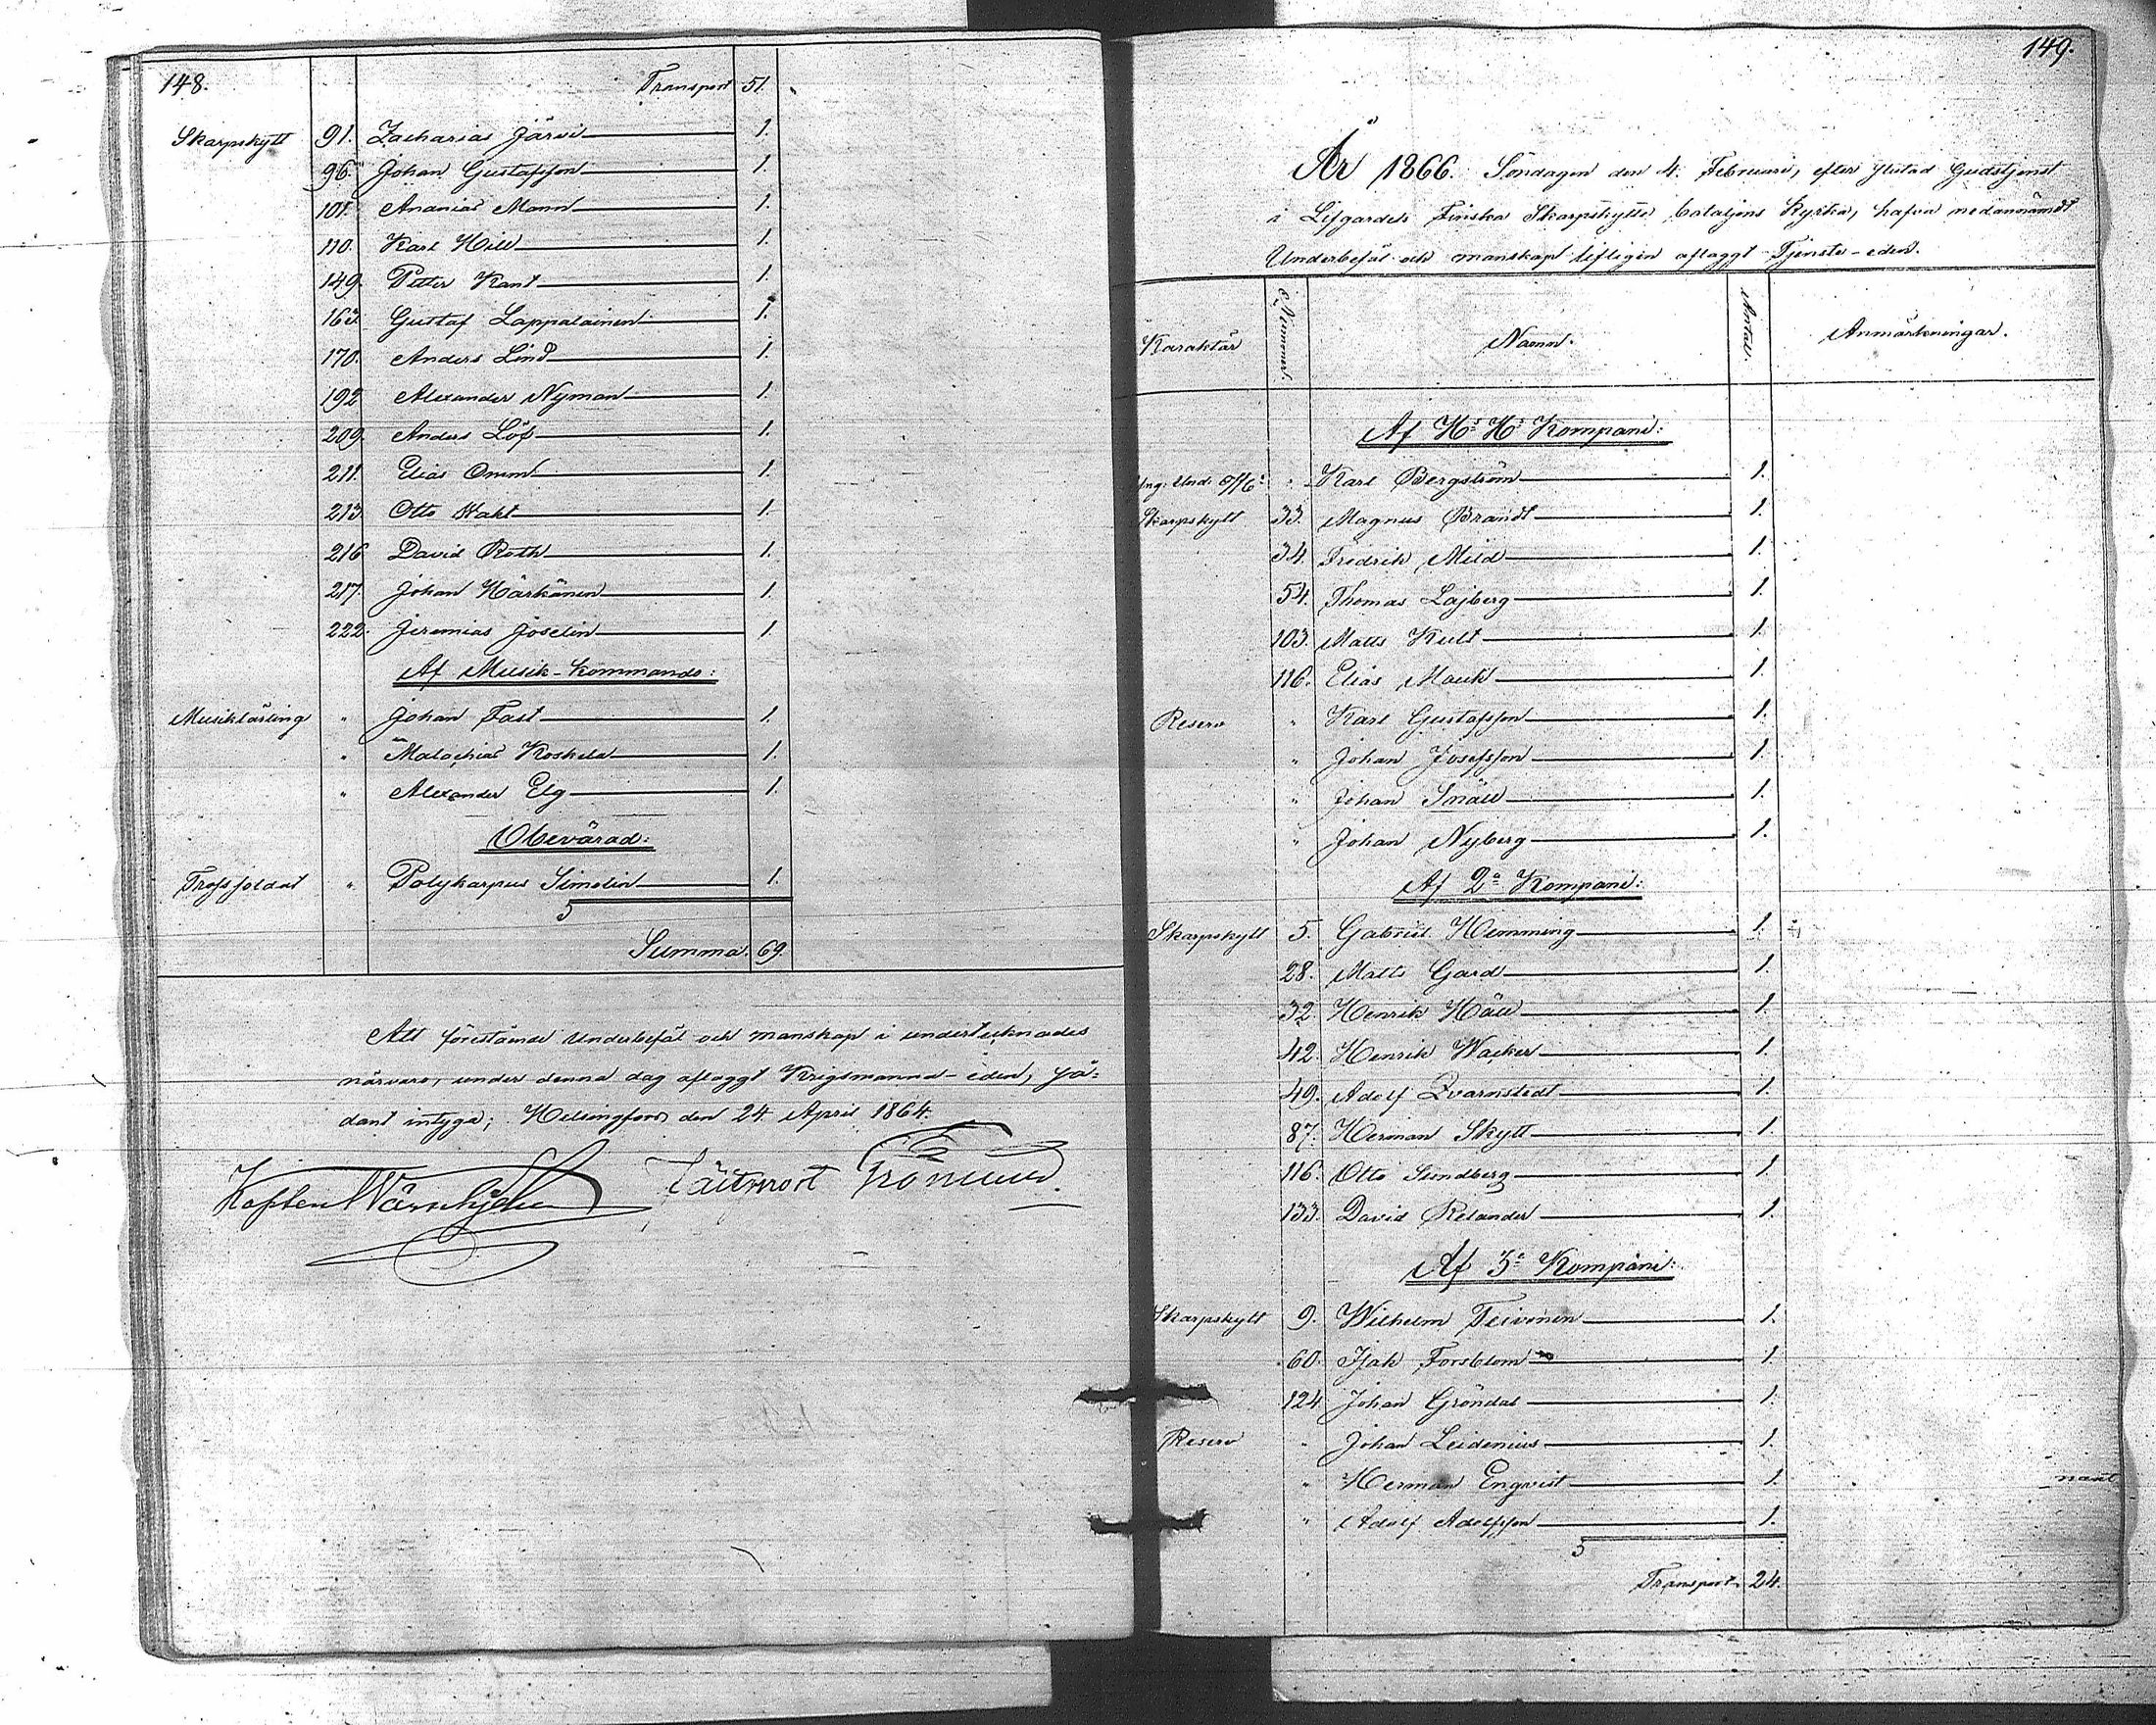 148.
Transport 51.
Skarpskytt 91. Zacharias Järvi 1.
96. Johan Gustafsson 1.
101. Ananias Mann 1.
110. Karl Hill 1.
149. Petter Kant 1.
163. Gustaf Lappalainen 1.
170. Anders Lind 1.
192 Alexander Nyman 1.
209. Anders Löf 1.
211. Elias Orm 1.
213. Otto Wakt 1.
216 David Roth 1.
217. Johan Härkänen 1.
222. Jeremias Joselin 1.
Af Musik-kommando:
Musiklärling " Johan Fast 1.
" Malachias Koskela 1.
" Alexander Elg 1.
Obevärad:
Trossoldat " Polykarpus Simelin 1.
Summa. 69.
Att förestående Underbefäl och manskap i undertecknades
närvaro, under denna dag aflaggt Krigsmanna-eden, så-
dant intyga; Helsingfors den 24 April 1864.
Kapten
149.
År 1866. Söndagen den 4. Februari, efter slutad Gudstjenst
i Lifgardets Finska Skarpskytte bataljons Kyrka, hafva nedannämdt
Underbefäl och manskap lifligen aflaggt Tjenste-eden.
Karaktär Nummer. Namn. Antal. Anmärkningar.
Af H:s H:s Kompani:
Yng. Und. Off:c: " Karl Bergström 1.
Skarpskytt 33. Magnus Brandt 1.
34. Fredrik Mild 1.
54. Thomas Lajberg 1.
103. Matts Kult 1.
116. Elias Mauk 1.
Reserv " Karl Gustafsson 1.
" Johan Josefsson 1.
" Johan Snäll 1.
" Johan Nyberg 1.
Af 2:a Kompani:
Skarpskytt 5. Gabriel Hemming 1.
28. Matts Gard 1.
32. Henrik Häll 1.
42. Henrik Wacker 1.
49. Adolf Qvarnstedt 1.
87. Herman Skytt 1.
116. Otto Sundberg 1.
133. David Relander 1.
Af 3:a Kompani:
Skarpskytt 9. Wilhelm Teivonen 1.
60. Isak Forsblom 1.
124. Johan Gröndal 1.
Reserv " Johan Leidenius 1.
" Herman Enqvist 1.
" Adolf Adolfsson 1.
Transport. 24.